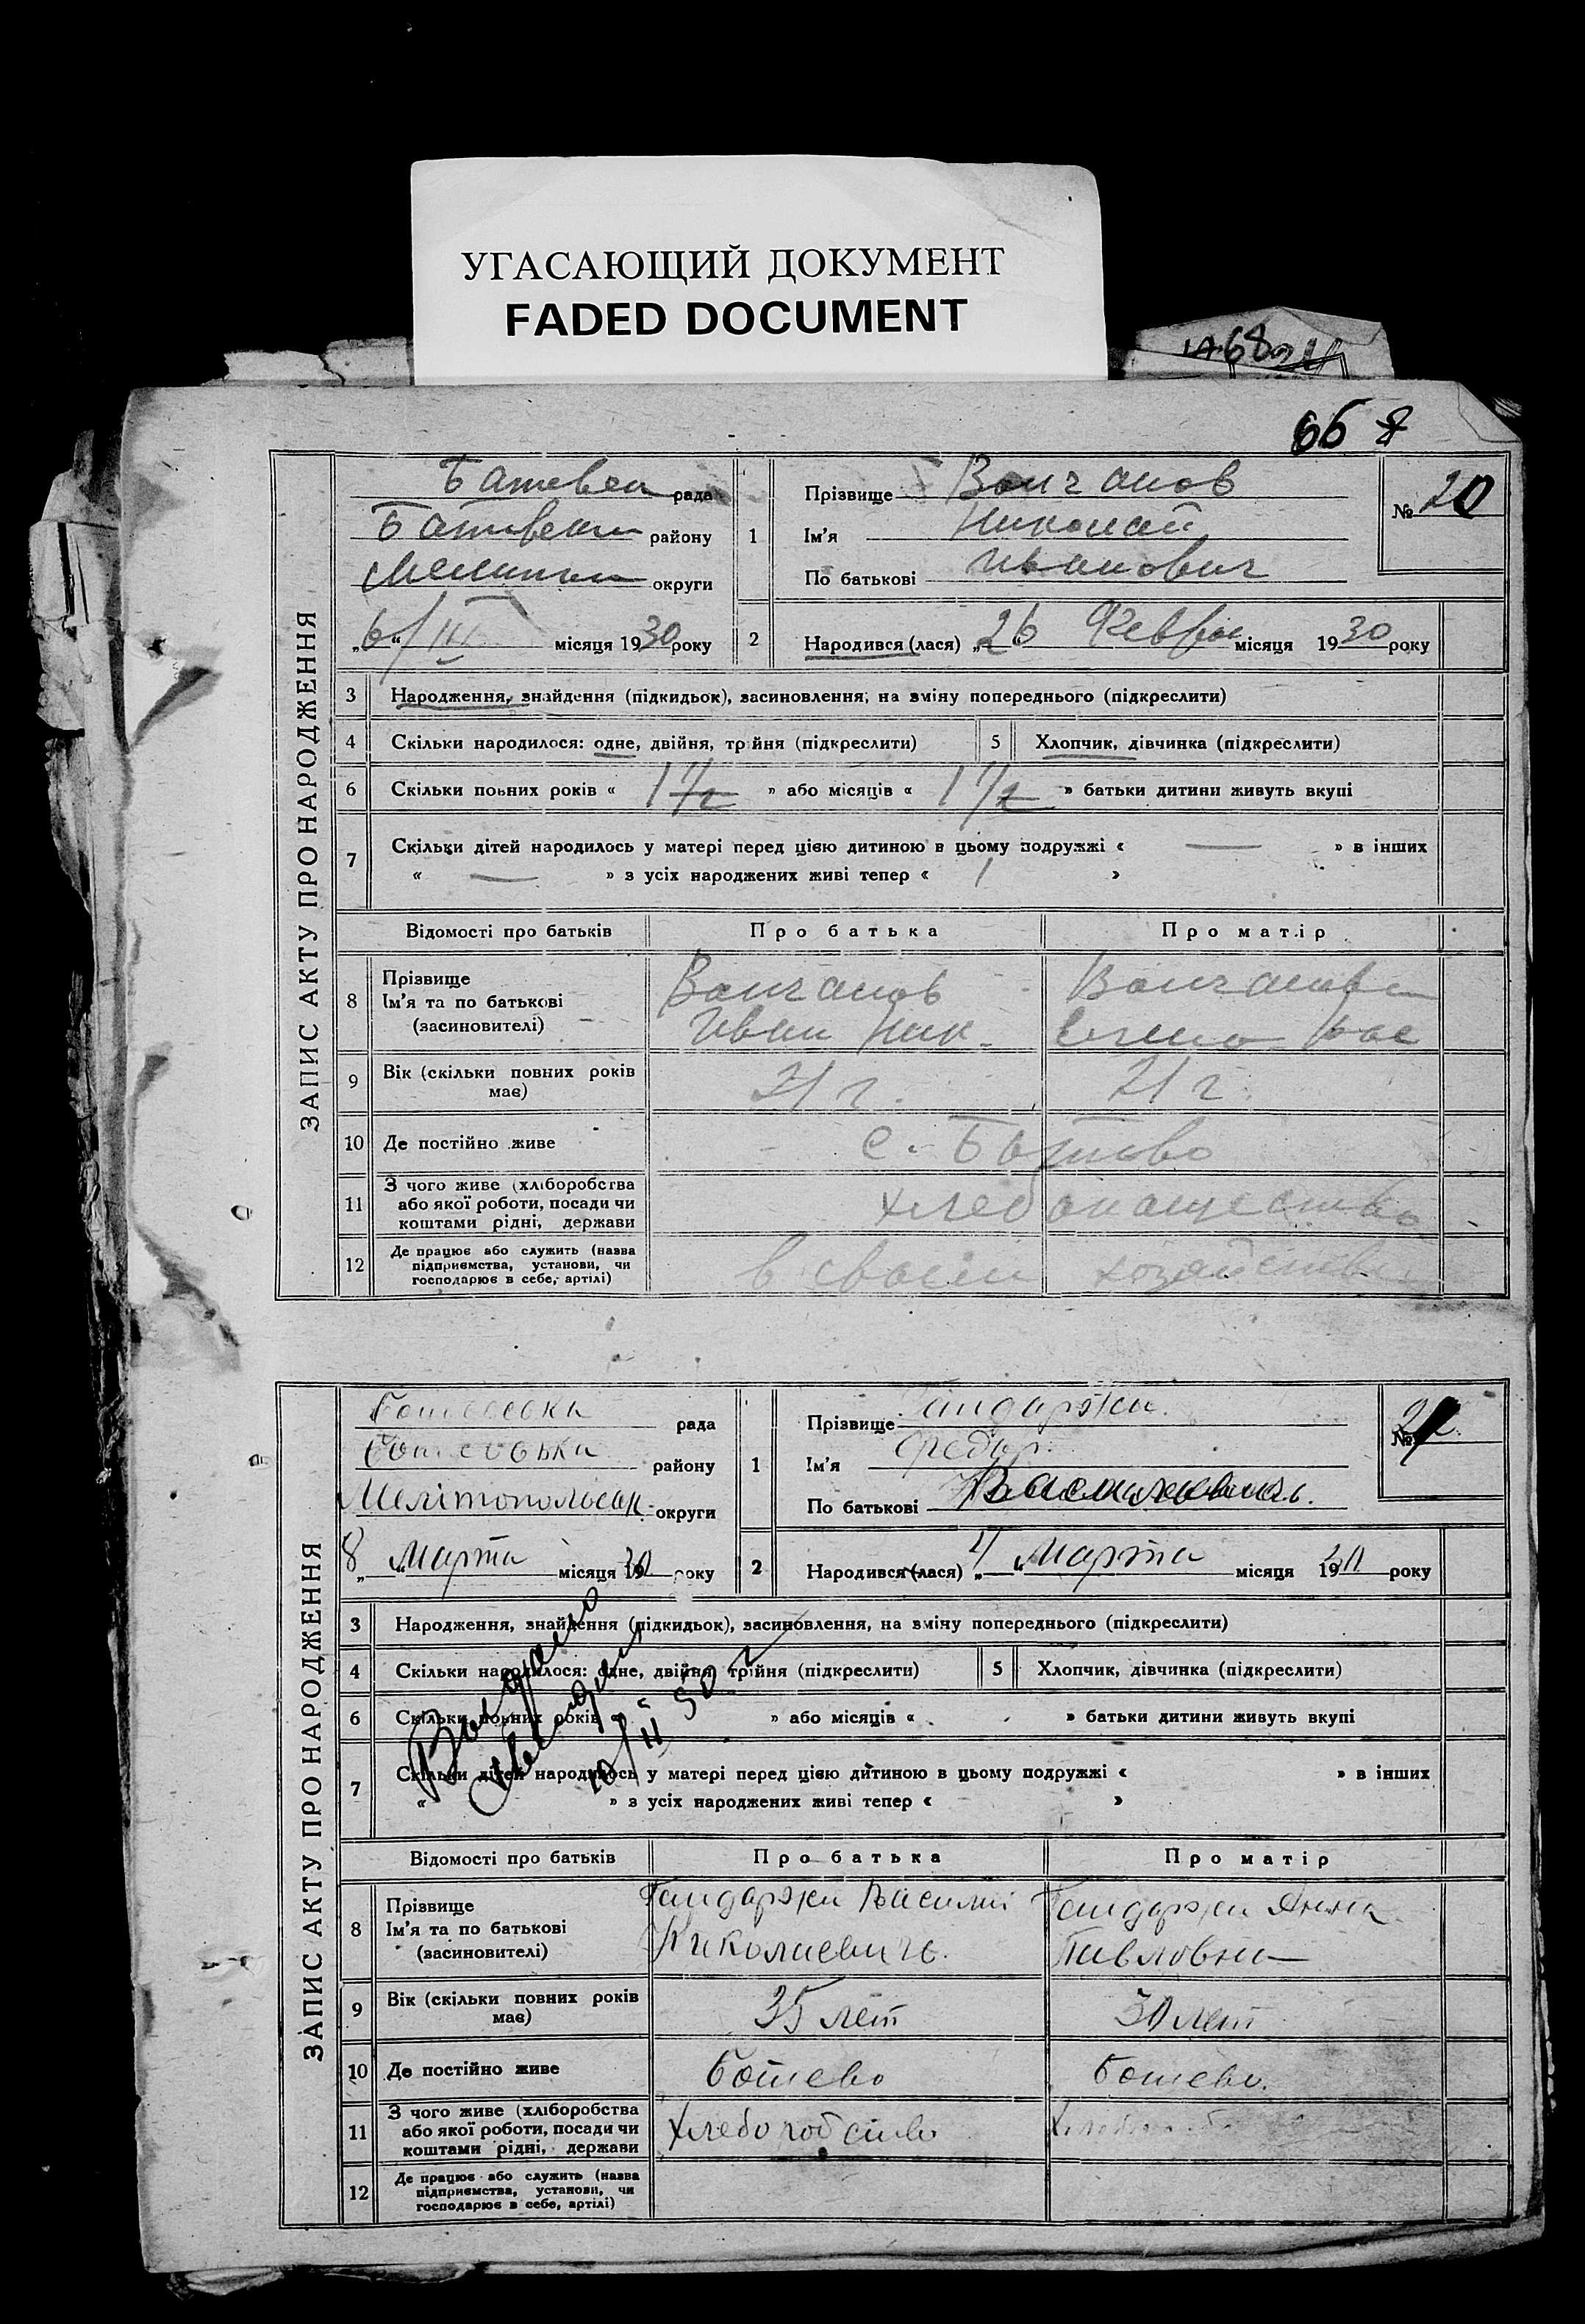 УГАСАЮЩИЙ ДОКУМЕНТ
FADED DOCUMENT
66
ЗАПИС АКТУ ПРО НАРОДЖЕННЯ
рада
району
округи
"6" III місяця 1930 року
1 Прізвище Волчанов
Ім'я Николай
По батькові Иванович
№ 20
2 Народився (лася) "26 Февра місяця 1930 року
3 Народження, знайдення (підкидьок), засиновлення, на зміну попереднього (підкреслити)
4 Скільки народилося: одне, двійня, трійня (підкреслити) 5 Хлопчик, дівчинка (підкреслити)
6 Скільки повних років « 1 1/2 » або місяців « 1 1/2 » батьки дитини живуть вкупі
7 Скільки дітей народилось у матері перед цією дитиною в цьому подружжі « — » в інших
« — » з усіх народжених живі тепер « 1 »
Відомості про батьків Про батька Про матір
8 Прізвище
Ім'я та по батькові
(засиновителі)
Волчанов
Иван Ник.
9 Вік (скільки повних років має) 21 г. 21 г.
10 Де постійно живе с. Ботиево
11 З чого живе (хліборобства
або якої роботи, посади чи
коштами рідні, держави
хлебопашество
12 Де працює або служить (назва
підприємства, установи, чи
господарює в себе, артілі)
в своем хозяйстве
ЗАПИС АКТУ ПРО НАРОДЖЕННЯ
рада
району
Мелітопольськ. округи
8 " Марта місяця 1930 року
1 Прізвище Гандаржи
Ім'я Федор.
По батькові Васильевич
№ 21
2 Народився (лася) "4" Марта місяця 1930 року
3 Народження, знайдення (підкидьок), засиновлення, на зміну попереднього (підкреслити)
4 Скільки народилося: одне, двійня, трійня (підкреслити) 5 Хлопчик, дівчинка (підкреслити)
6 Скільки повних років » або місяців « » батьки дитини живуть вкупі
7 Скільки дітей народилось у матері перед цією дитиною в цьому подружжі « » в інших
« » з усіх народжених живі тепер « »
Відомості про батьків Про батька Про матір
8 Прізвище
Ім'я та по батькові
(засиновителі)
Гандаржи Василий
Николаевич.
Гандаржи Анна
Павловна
9 Вік (скільки повних років має) 35 лет 30 лет
10 Де постійно живе Ботиево Ботиево.
11 З чого живе (хліборобства
або якої роботи, посади чи
коштами рідні, держави
12 Де працює або служить (назва
підприємства, установи, чи
господарює в себе, артілі)